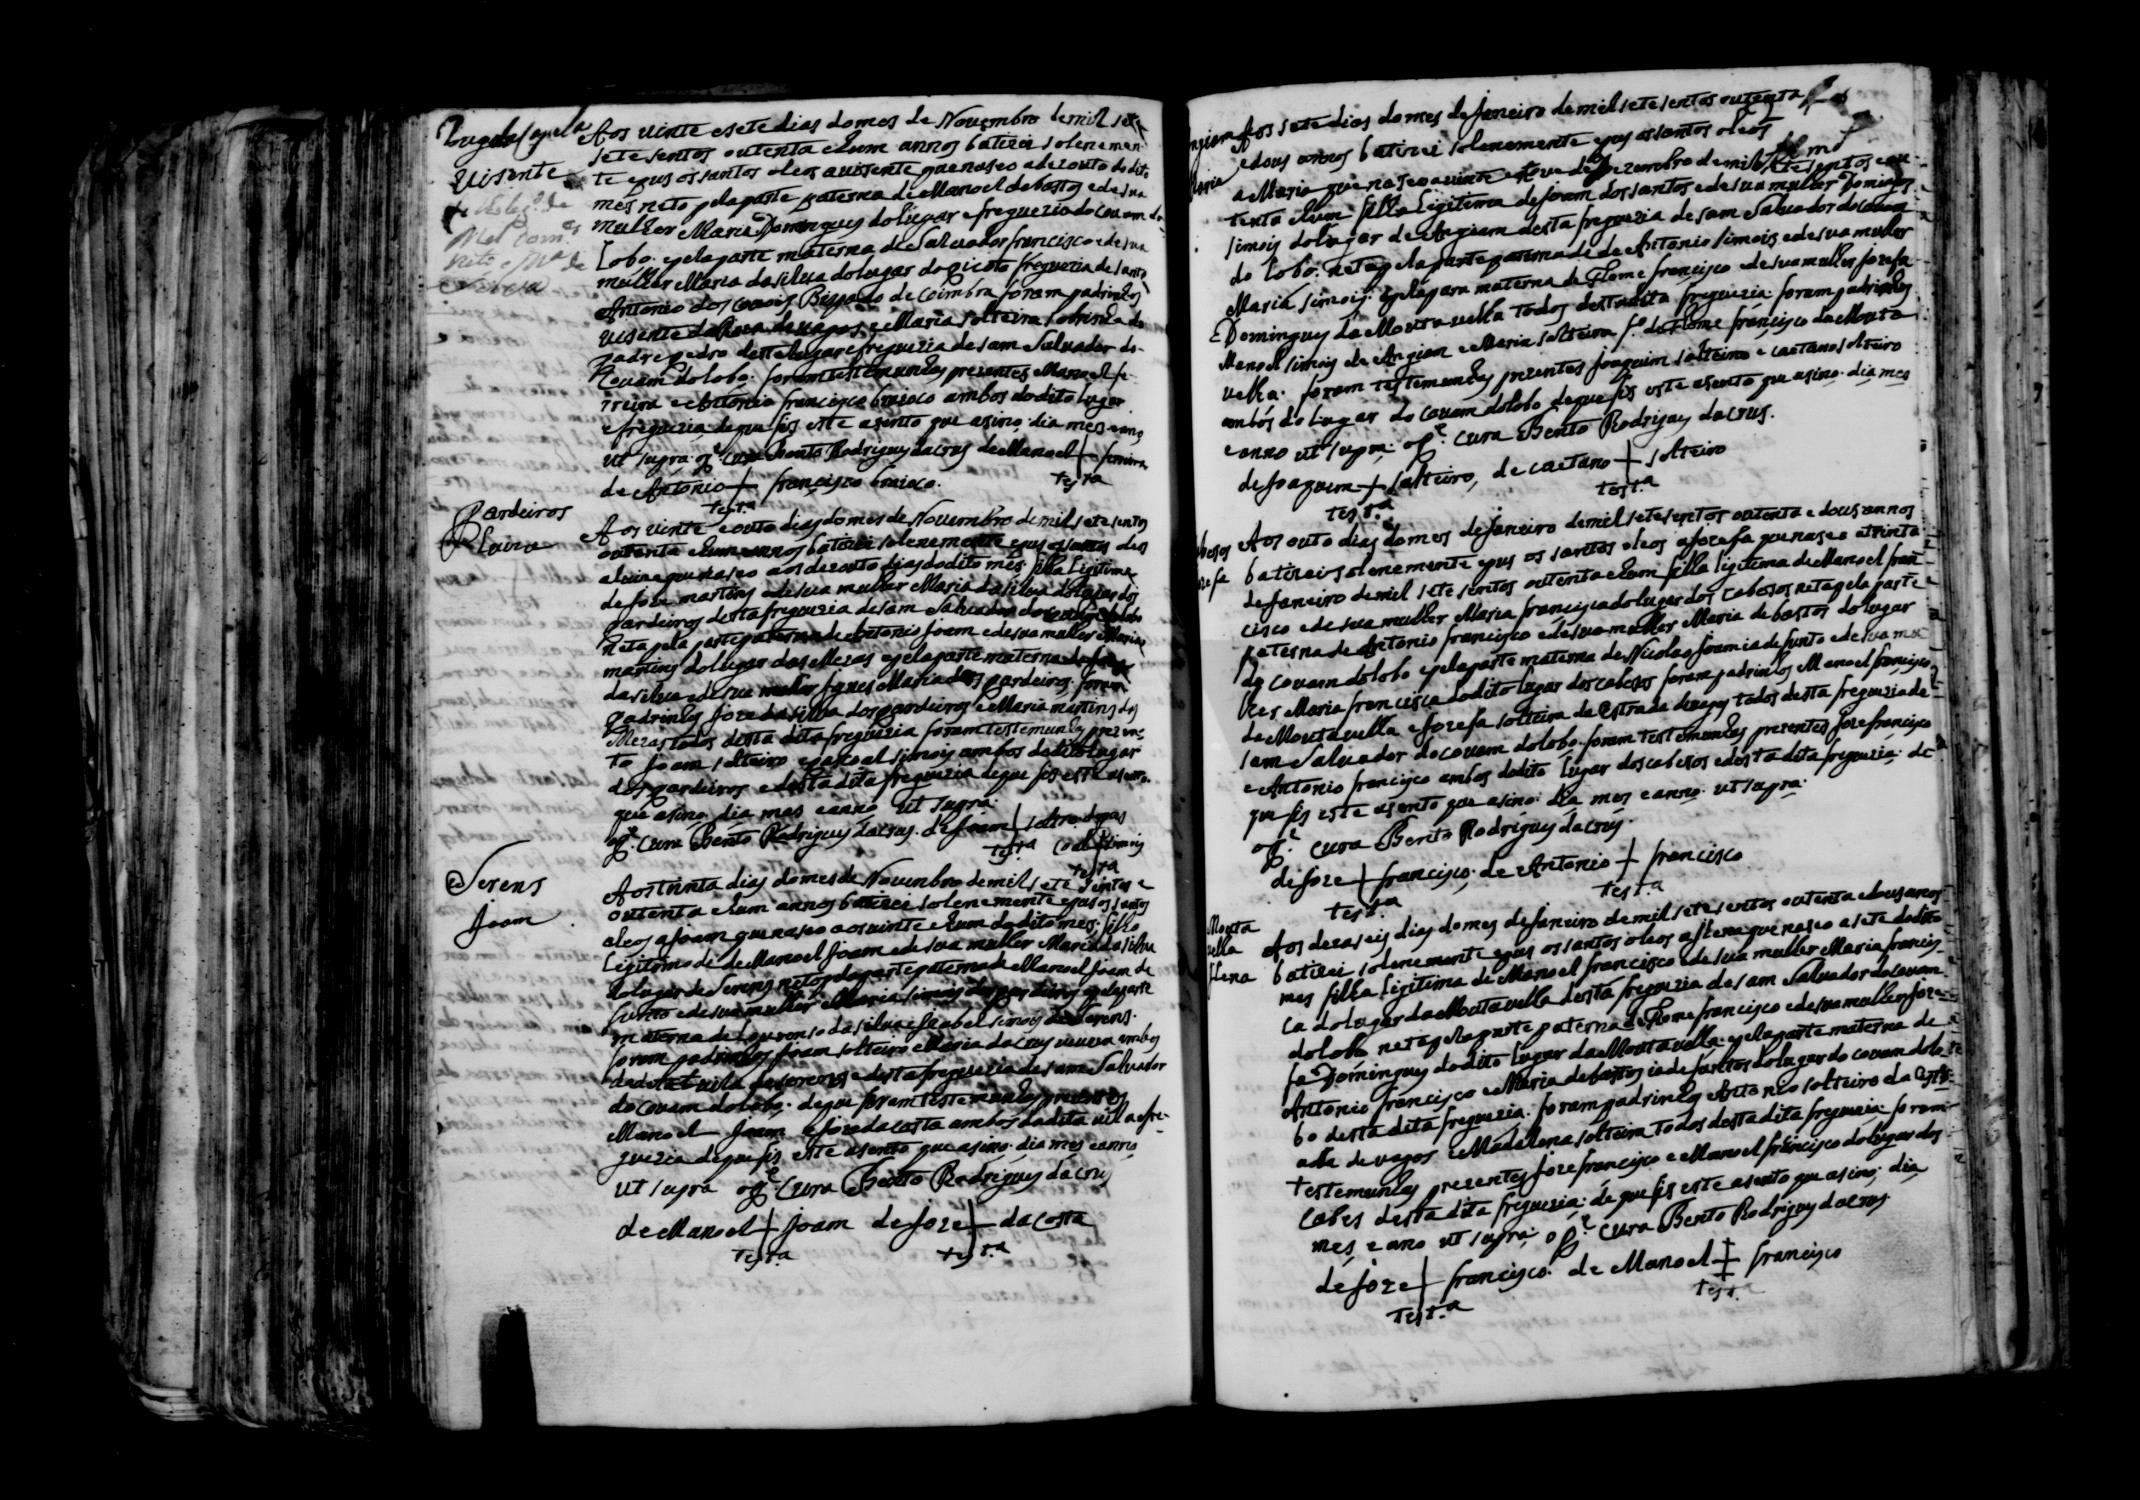 Visente
Aos vinte esete dias do mes de Novembro demil sete
setesentos outenta ehum annos batizei solenemen
te epus os santos oleos avisente quenaseo adezouto dodito
mes neto pelaparte paterna de Manoel debastos edesua
mulher Maria Domingues dolugar efreguezia do Covam do
Lobo. epelaparte materna de Salvador francisco edesua
mulher Maria dasilva dolugar freguezia desanto
Antonio dos Covois Bispado de Coimbra foram padrinhos
visente devagos, eMaria solteira sobrinha do
padre pedro destelugar efreguezia desam Salvador do
Covam dolobo. foram testemunhas prezentes Manoel fe
rreira eAntonio francisco ambos dodito lugar
efreguezia dequefis este asento que asino. dia mes eanno
ut supra. o P.e Cura Bento Rodrigues dacrus deManoel + ferreira
de Antonio + francisco
test.a
test.a
Pardeiros
Luiza
Aos vinte eouto dias domes de Novembro demil setesentos
outenta ehum annos batizei solenemente epus os santos oleos
aluiza quenaseo aos dezouto dias dodito mes filha Legitima
de Joze martins edesua mulher Maria dasilva dolugar dos
pardeiros desta freguezia desam Salvador do covam dolobo
Neta pela parte paterna de Antonio Joam edesua mulher Maria
martins dolugar das Mezas epelaparte materna de
dasilva edesua mulher Maria dos pardeiros. foram
padrinhos Joze dasilva dos pardeiros eMaria martins das
Mezas todos desta dita freguezia foram testemunhas prezen
te Joam solteiro epascoal simois ambos dodito lugar
dos pardeiros edesta dita freguezia deque fis este asento
que asino. dia mes eanno ut supra.
o P.e Cura Bento Rodrigues dacrus. de Joam + solteiro depas
test.a coal + simois
test.a
Serens
Joam
Aos trinta dias domes de Novembro demil sete sentos e
outenta ehum annos batizei solenemente epus os santos
oleos a Joam quenaseo aos vinte ehum dodito mes. filho
Legitimo de de Manoel Joam edesua mulher Maria dasilva
dolugar de Serens neto daparte paterna de Manoel Joam de
funto edesua mulher Maria simois dos pardeiros epelaparte
materna de Lourenso dasilva eIzabel simois de Serens.
foram padrinhos Joam solteiro eMaria dacrus veuva ambos
dadita vila deserens edesta freguezia desam Salvador
do covam dolobo. deque foram testemunhas prezentes
Manoel Joam eJoze da costa ambos dadita vila efre
guezia dequefis este asento que asino. dia mes eanno
ut supra o P.e Cura Bento Rodrigues dacrus
de Manoel + Joam de Joze + dacosta
test.a test.a
Angiam
Maria
Aos sete dias do mes de Janeiro demil setesentos outenta
edous annos batizei solenemente epus os santos oleos
a Maria que naseo avinte enove de dezembro demil setesentos eou
tenta ehum filha Legitima de Joam dos santos edesua mulher Domingas
simois dolugar de Angiam desta freguezia desam Salvador do Covam
do Lobo. neta pelaparte paterna de de Antonio simois edesua mulher
Maria simois. epelapara materna de Thome francisco edesua mulher Jozefa
Domingues da Moutavelha todos desta dita freguezia. foram padrinhos
Manoel simois de Angiam eMaria solteira f.a de Thome francisco da Mouta
velha. foram testemunhas prezentes Joaquim solteiro e caetano solteiro
ambos do lugar do covam dolobo dequefis este asento que asino. dia mes
e anno ut supra. o P.e Cura Bento Rodrigues dacrus.
de Joaquim + solteiro, de caetano + solteiro
test.a test.a
Cabesos
Jozefa
Aos outo dias do mes de Janeiro demil setesentos outenta e dous annos
batizei solenemente epus os santos oleos aJozefa que naseo atrinta
de Janeiro demil sete sentos outenta ehum filha Legitima de Manoel fran
cisco edesua mulher Maria francisca dolugar dos Cabesos neta pela parte
paterna de Antonio francisco edesua mulher Maria de bastos dolugar
do Covam dolobo epelaparte materna de Nicolao Joam ia defunto edesua mu
lher Maria francisca dodito lugar dos cabesos foram padrinhos Manoel francisco
da Moutavelha eJozefa solteira da Estrada devagos todos desta freguezia de
sam Salvador do covam dolobo. foram testemunhas prezentes Joze francisco
e Antonio francisco ambos dodito lugar dos cabesos edesta dita freguezia. de
que fis este asento que asino. dia mes eanno. ut supra.
o P.e cura Bento Rodrigues dacrus.
de Joze + francisco. de Antonio + francisco
test.a test.a
Mouta
velha
Elena
Aos dezaseis dias do mes de Janeiro demil setesentos outenta edous annos
batizei solenemente epus os santos oleos aElena que naseo asete dodito
mes filha Legitima de Manoel francisco edesua mulher Maria francis
ca dolugar da Moutavelha desta freguezia desam Salvador do Covam
dolobo neta pelaparte paterna de Thome francisco edesua mulher Joze
fa Domingues dodito lugar da Moutavella. epelaparte materna de
Antonio francisco eMaria debastos iadefuntos dolugar do covam dolo
bo desta dita freguezia. foram padrinhos Antonio solteiro da Estr
ada de vagos eMadalena solteira todos desta dita freguezia foram
testemunhas prezentes Joze francisco e Manoel francisco dolugar dos
Cabes desta dita freguezia. deque fis este asento que asino; dia
mes e ano ut supra; o P.e Cura Bento Rodrigues dacrus
de Joze + francisco. de Manoel + francisco
test.a test.a